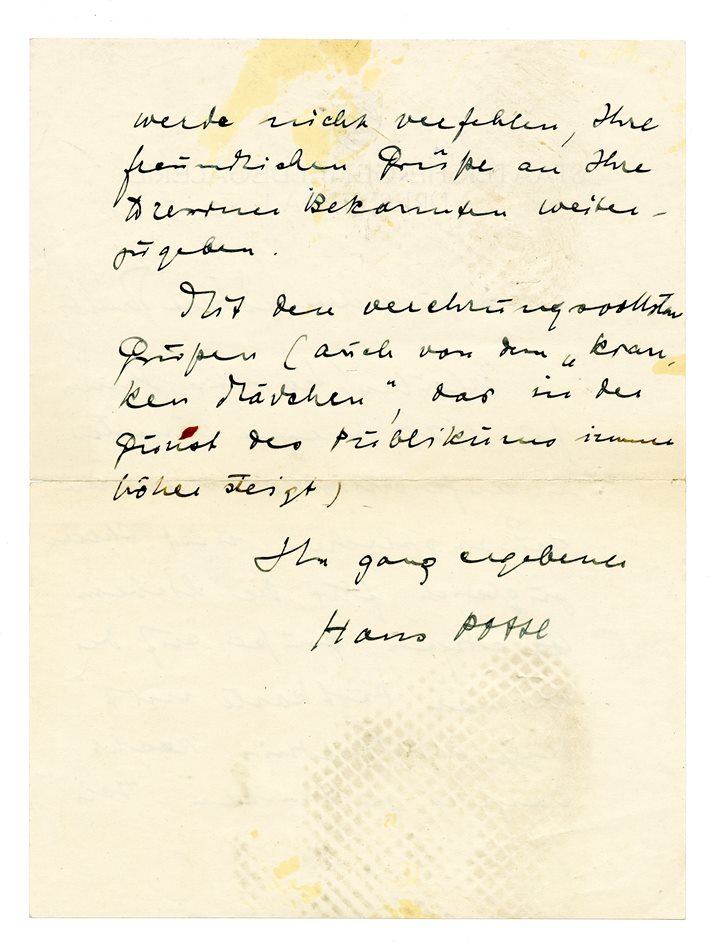 werde nicht verfehlen, Ihre
freundlichen Grüße an Ihre
Dresdner Bekannten weiter-
zugeben.
Mit den verehrungsvollsten
Grüßen (auch von dem „kran-
ken Mädchen", das in der
Gunst des Publikums immer
höher steigt)
Ihr ganz ergebener
Hans Posse